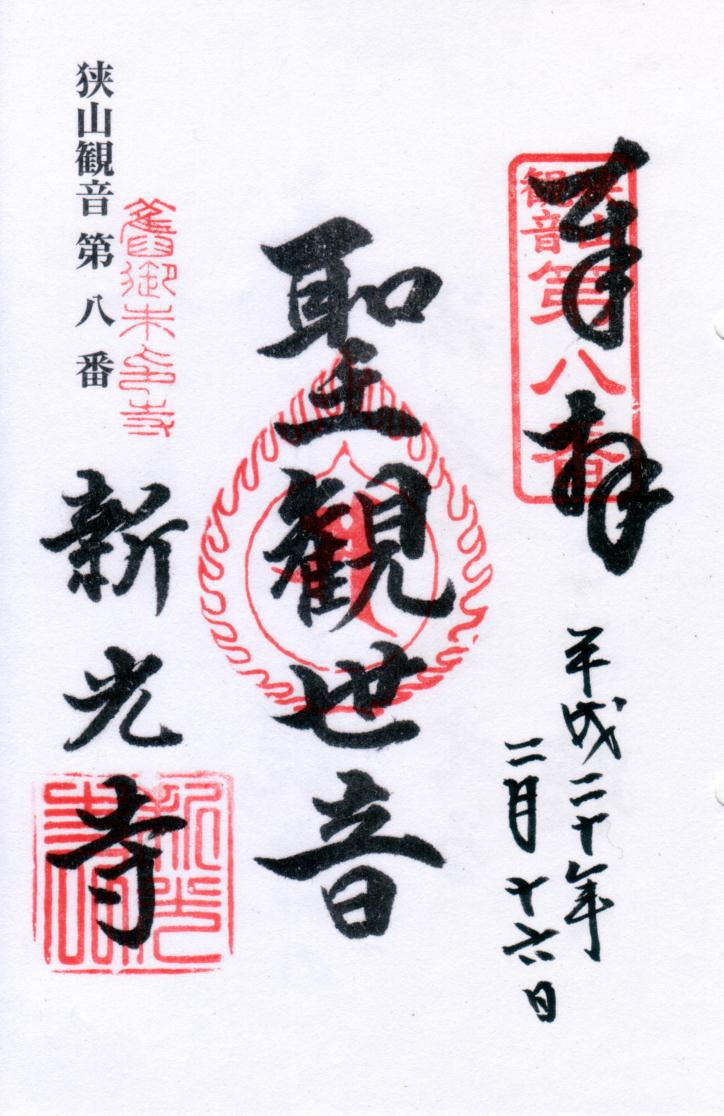 奉拝
狭山
観音
第八番
平成二十年
二月十六日
聖観世音
舊御朱印寺
狭山観音第八番
新光寺
新光
寺印